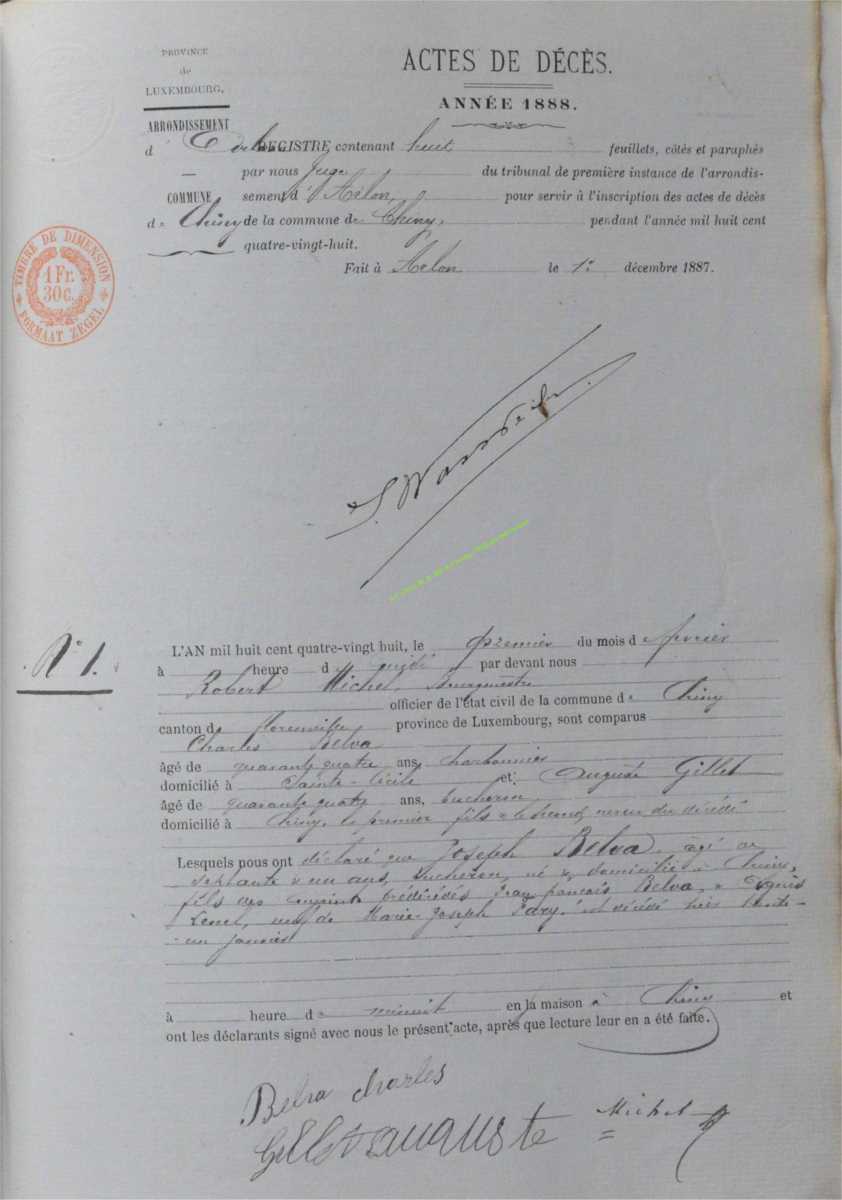 PROVINCE
de
LUXEMBOURG.
ARRONDISSEMENT
d'
COMMUNE
de Chiny
TIMBRE DE DIMENSION
1 Fr.
30 c.
FORMAAT ZEGEL
ACTES DE DÉCÈS.
ANNÉE 1888.
REGISTRE contenant huit feuillets, côtés et paraphés
par nous Juge du tribunal de première instance de l'arrondis-
sement d'Arlon, pour servir à l'inscription des actes de décès
de la commune de Chiny, pendant l'année mil huit cent
quatre-vingt-huit.
Fait à Arlon le 1er décembre 1887.
N° 1.
L'AN mil huit cent quatre-vingt huit, le premier du mois d février
à heure de midi par devant nous
Robert Michel, Bourgmestre
officier de l'état civil de la commune de Chiny
canton de florenville province de Luxembourg, sont comparus
Charles Belva
âgé de quarante quatre ans, charbonnier
domicilié à Sainte-Cécile et Auguste Gillet
âgé de quarante quatre ans, bucheron
domicilié à Chiny, le premier fils & le second neveu du décédé
Lesquels nous ont déclaré que Joseph Belva, âgé de
septante & un ans, bucheron, né & domicilié à Chiny,
fils des conjoints prédécédés Jean françois Belva, & Agnès
veuf de Marie-Joseph est décédé hier trente-
un janvier
à heure de minuit en la maison à Chiny et
ont les déclarants signé avec nous le présent acte, après que lecture leur en a été faite.
Belva charles
Gillet auguste
Michel R